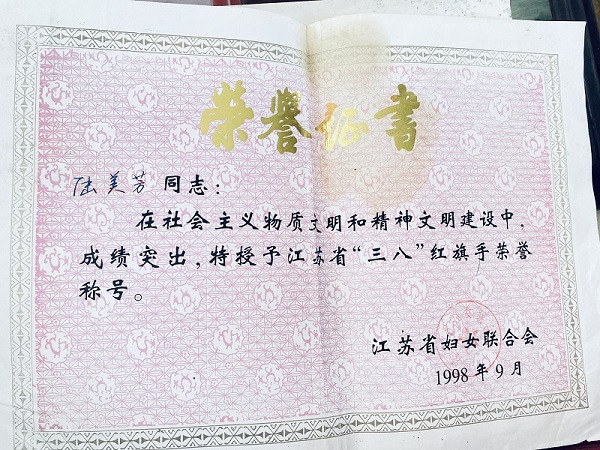 荣誉证书
陆美芳 同志:
在社会主义物质文明和精神文明建设中,
成绩突出,特授予江苏省“三八”红旗手荣誉
称号。
江苏省妇女联合会
1998年9月